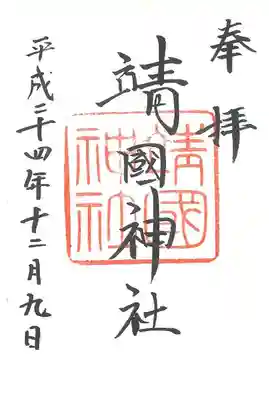 奉拝
靖國神社
靖國
神社
平成二十四年十二月九日